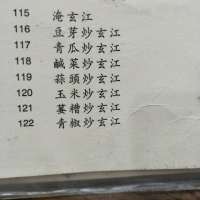 115 淹玄江
116 豆芽炒玄江
117 青瓜炒玄江
118 鹹菜炒玄江
119 蒜頭炒玄江
120 玉米炒玄江
121 蔞糟炒玄江
122 青椒炒玄江